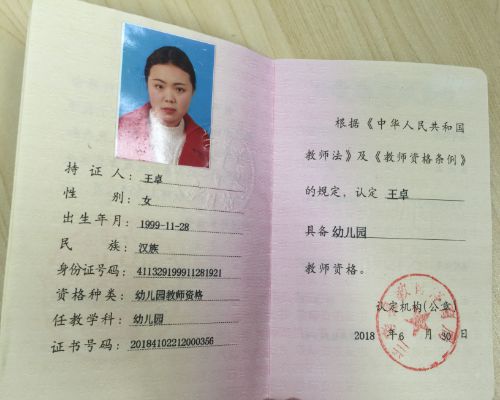 持证人：王卓
性别：女
出生年月：1999-11-28
民族：汉族
身份证号码：411329199911281921
资格种类：幼儿园教师资格
任教学科：幼儿园
证书号码：20184102212000356
根据《中华人民共和国
教师法》及《教师资格条例》
的规定，认定 王卓
具备 幼儿园
教师资格。
认定机构(公章)
2018 年 6 月 30 日